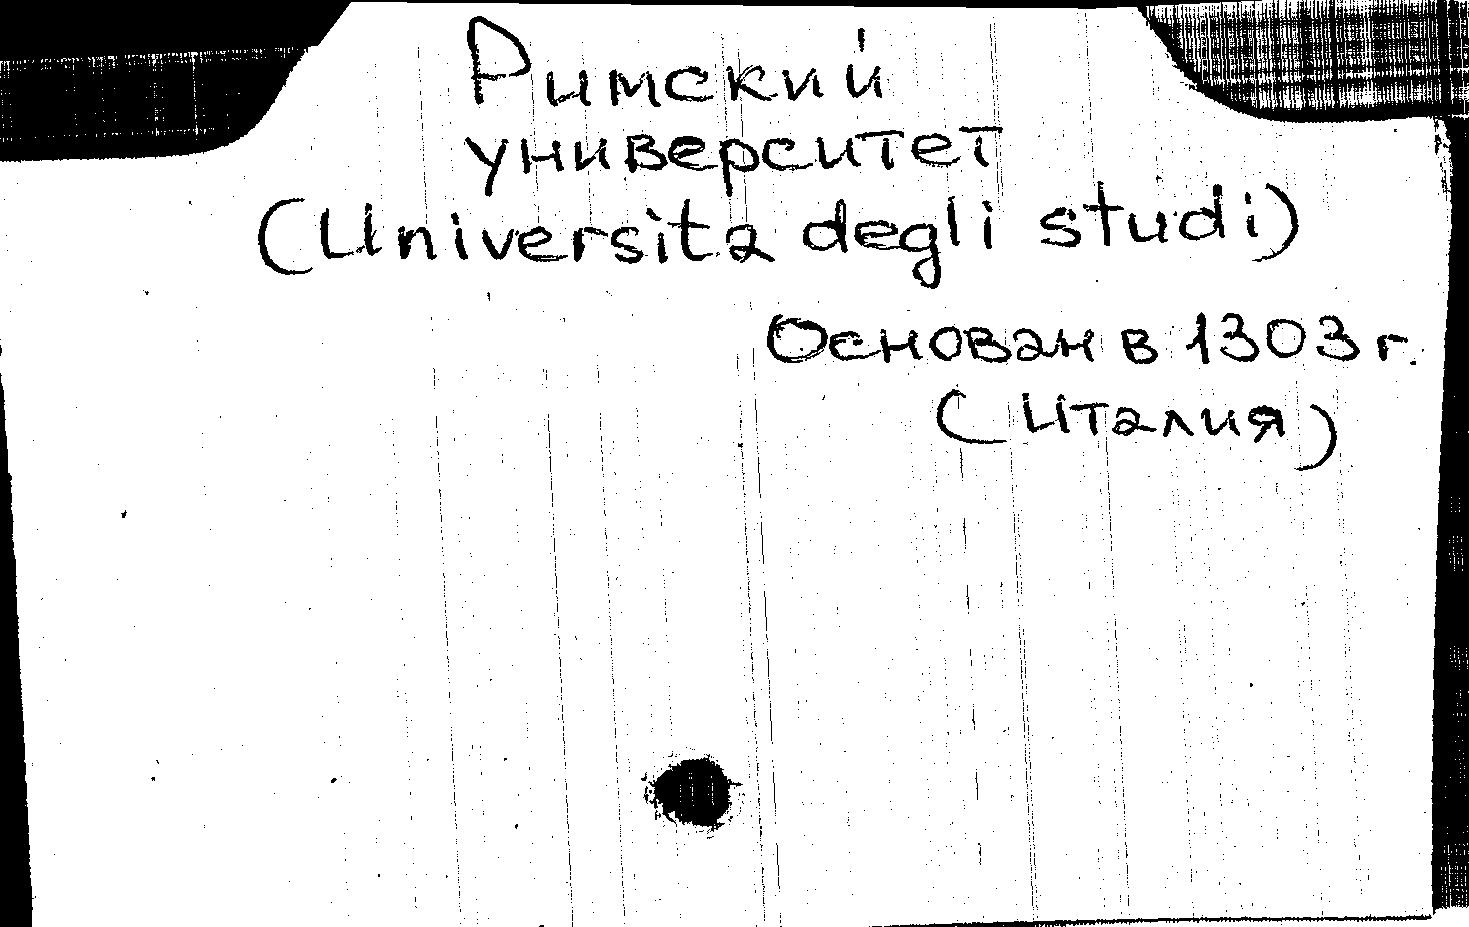 Римский
университет
(Universita degli studi)
Основан в 1303 г.
(Италия)